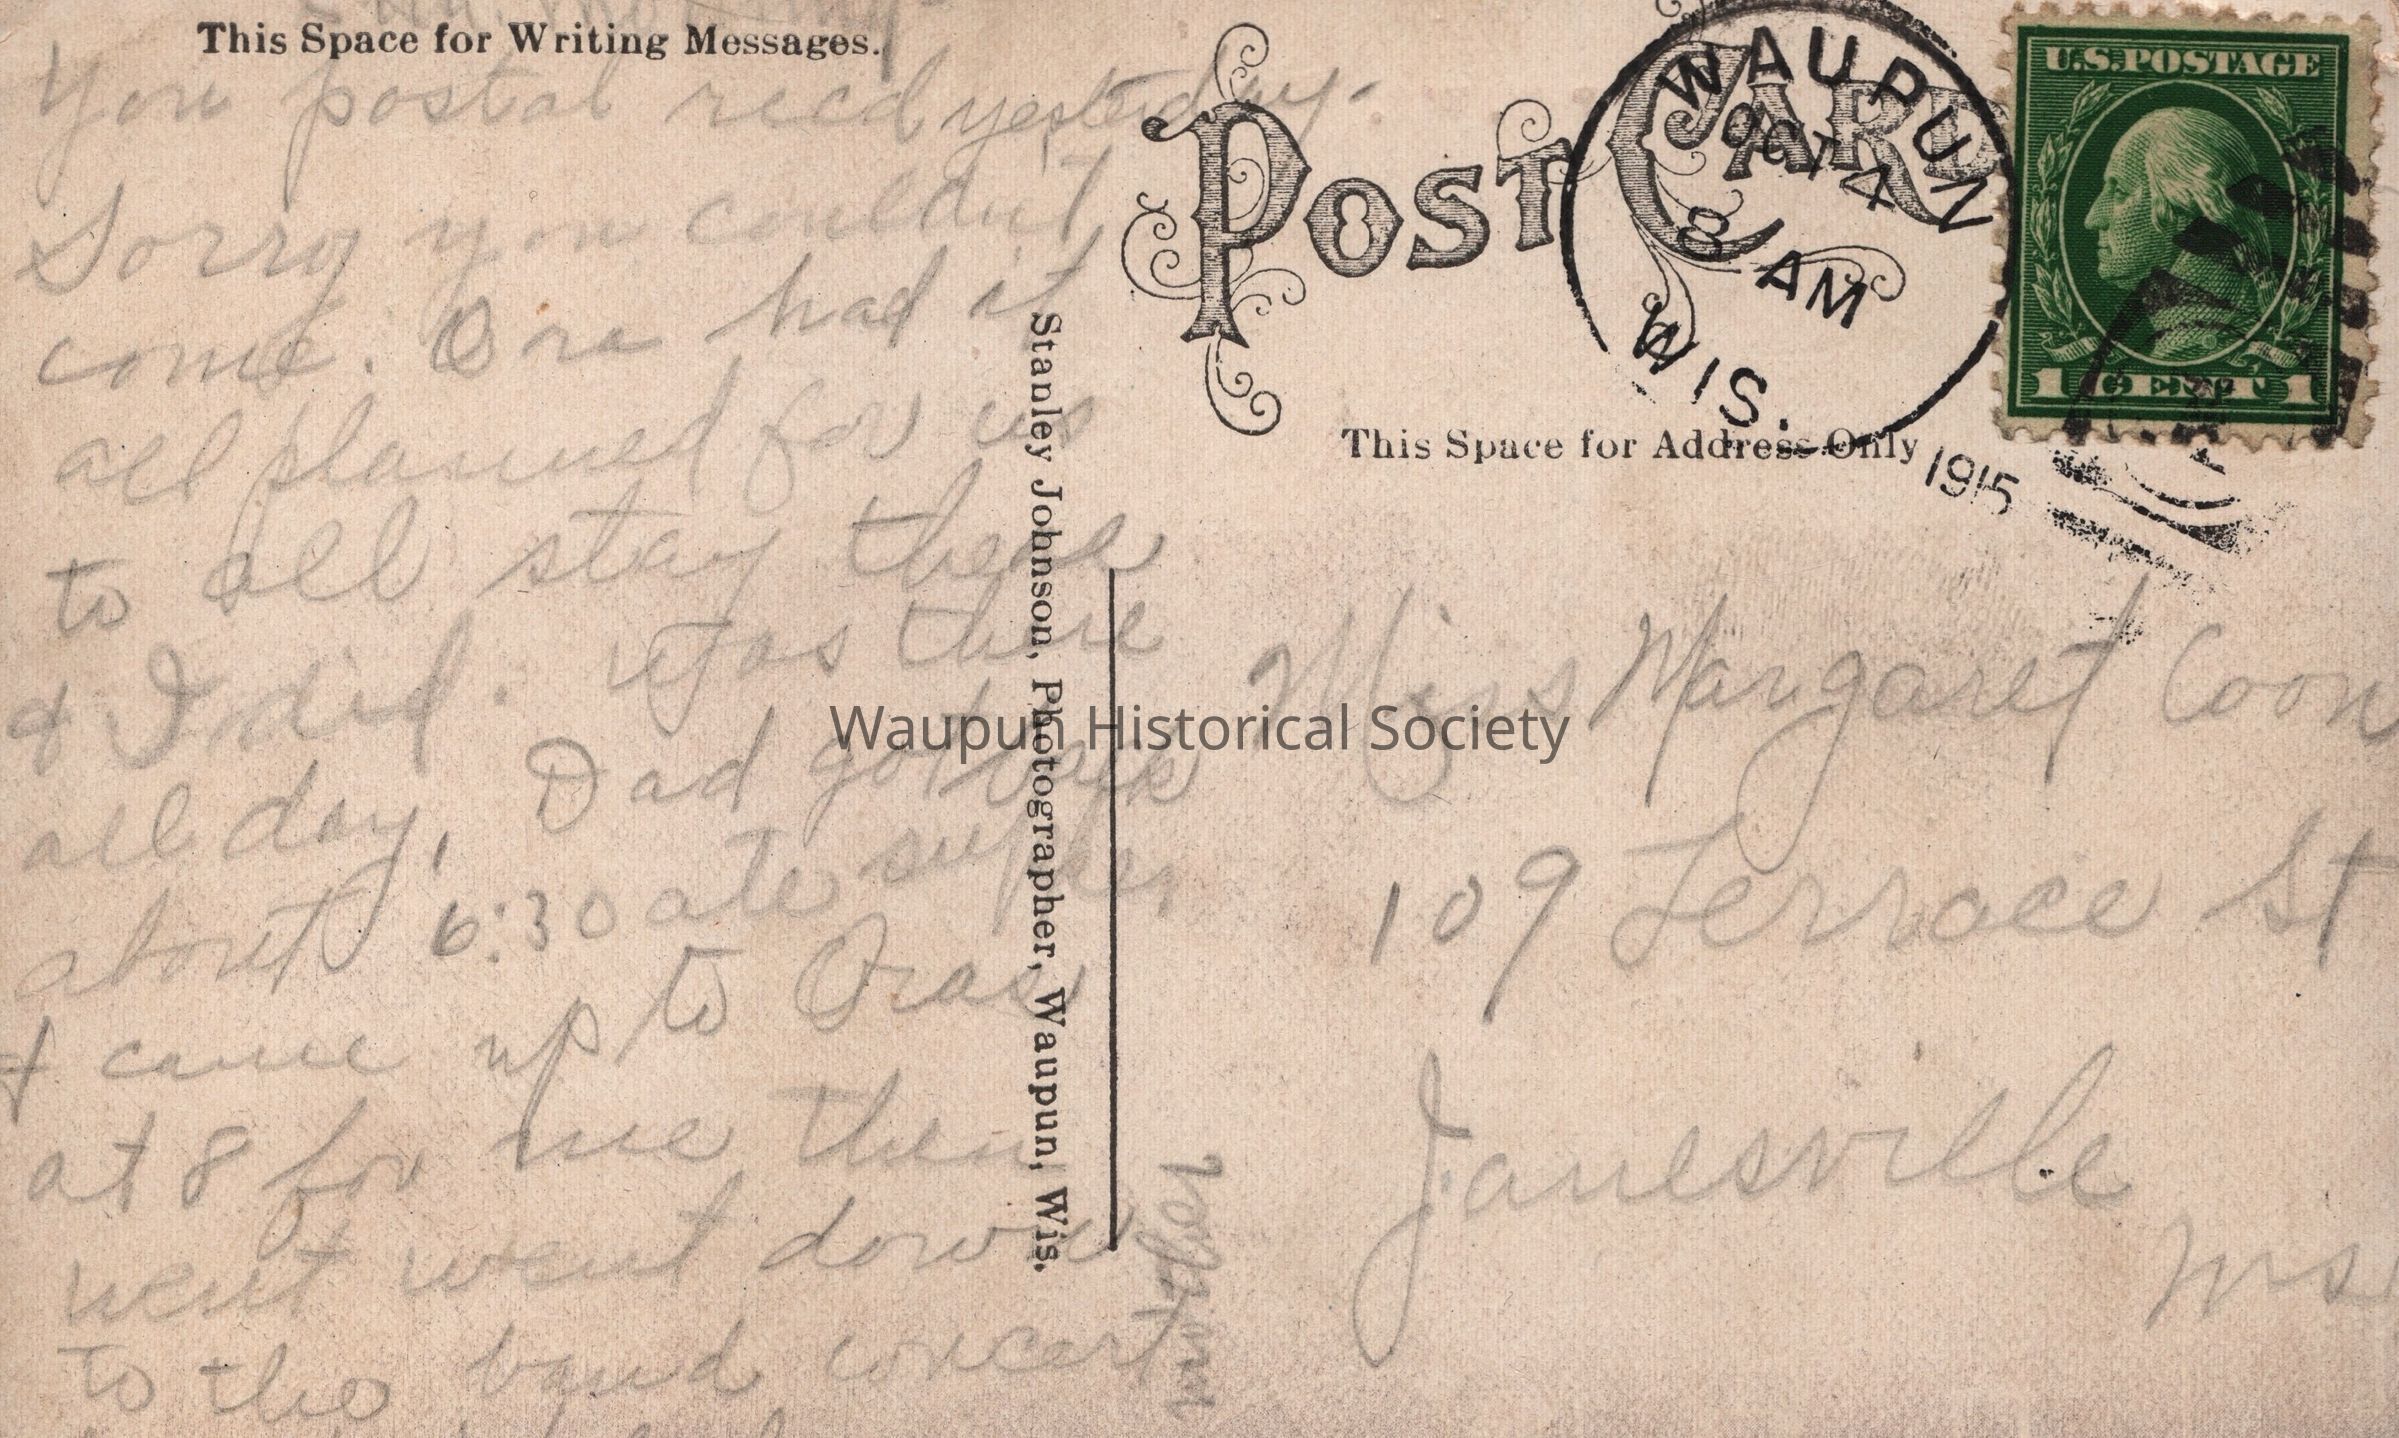 This Space for Writing Messages.
You postal recd yesterday.
Sorry you couldn't
come. Ora had it
all planned for us
to all stay there
& I did. Was there
all day, Dad got back
about 6:30 ate supper
& came up to Oras
at 8 for me then
went went down
to the band concert
Stanley Johnson, Photographer, Waupun, Wis.
POST CARD
WAUPUN
OCT 4
8 AM
WIS.
1915
U.S. POSTAGE
1 CENT 1
This Space for Address Only
Miss Margaret Coon
109 Terrace St
Janesville
Wis
Waupun Historical Society